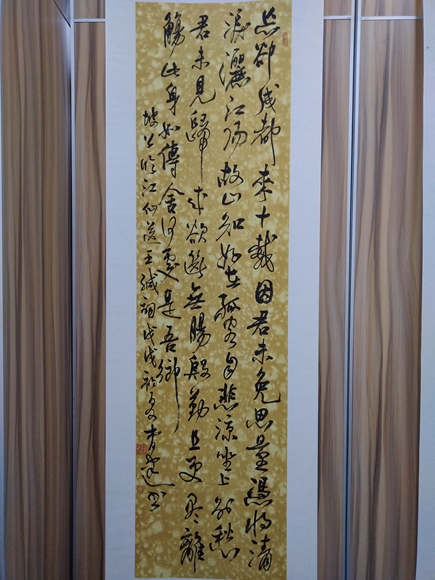 忘卻成都來十載因君未免思量憑將清
淚灑江陽故山知好在孤客自悲涼坐上別愁
君未見歸來欲斷無腸殷勤且更盡離
觴此身如傳舍何處是吾鄉
坡公临江仙送王緘詞戊戌初書